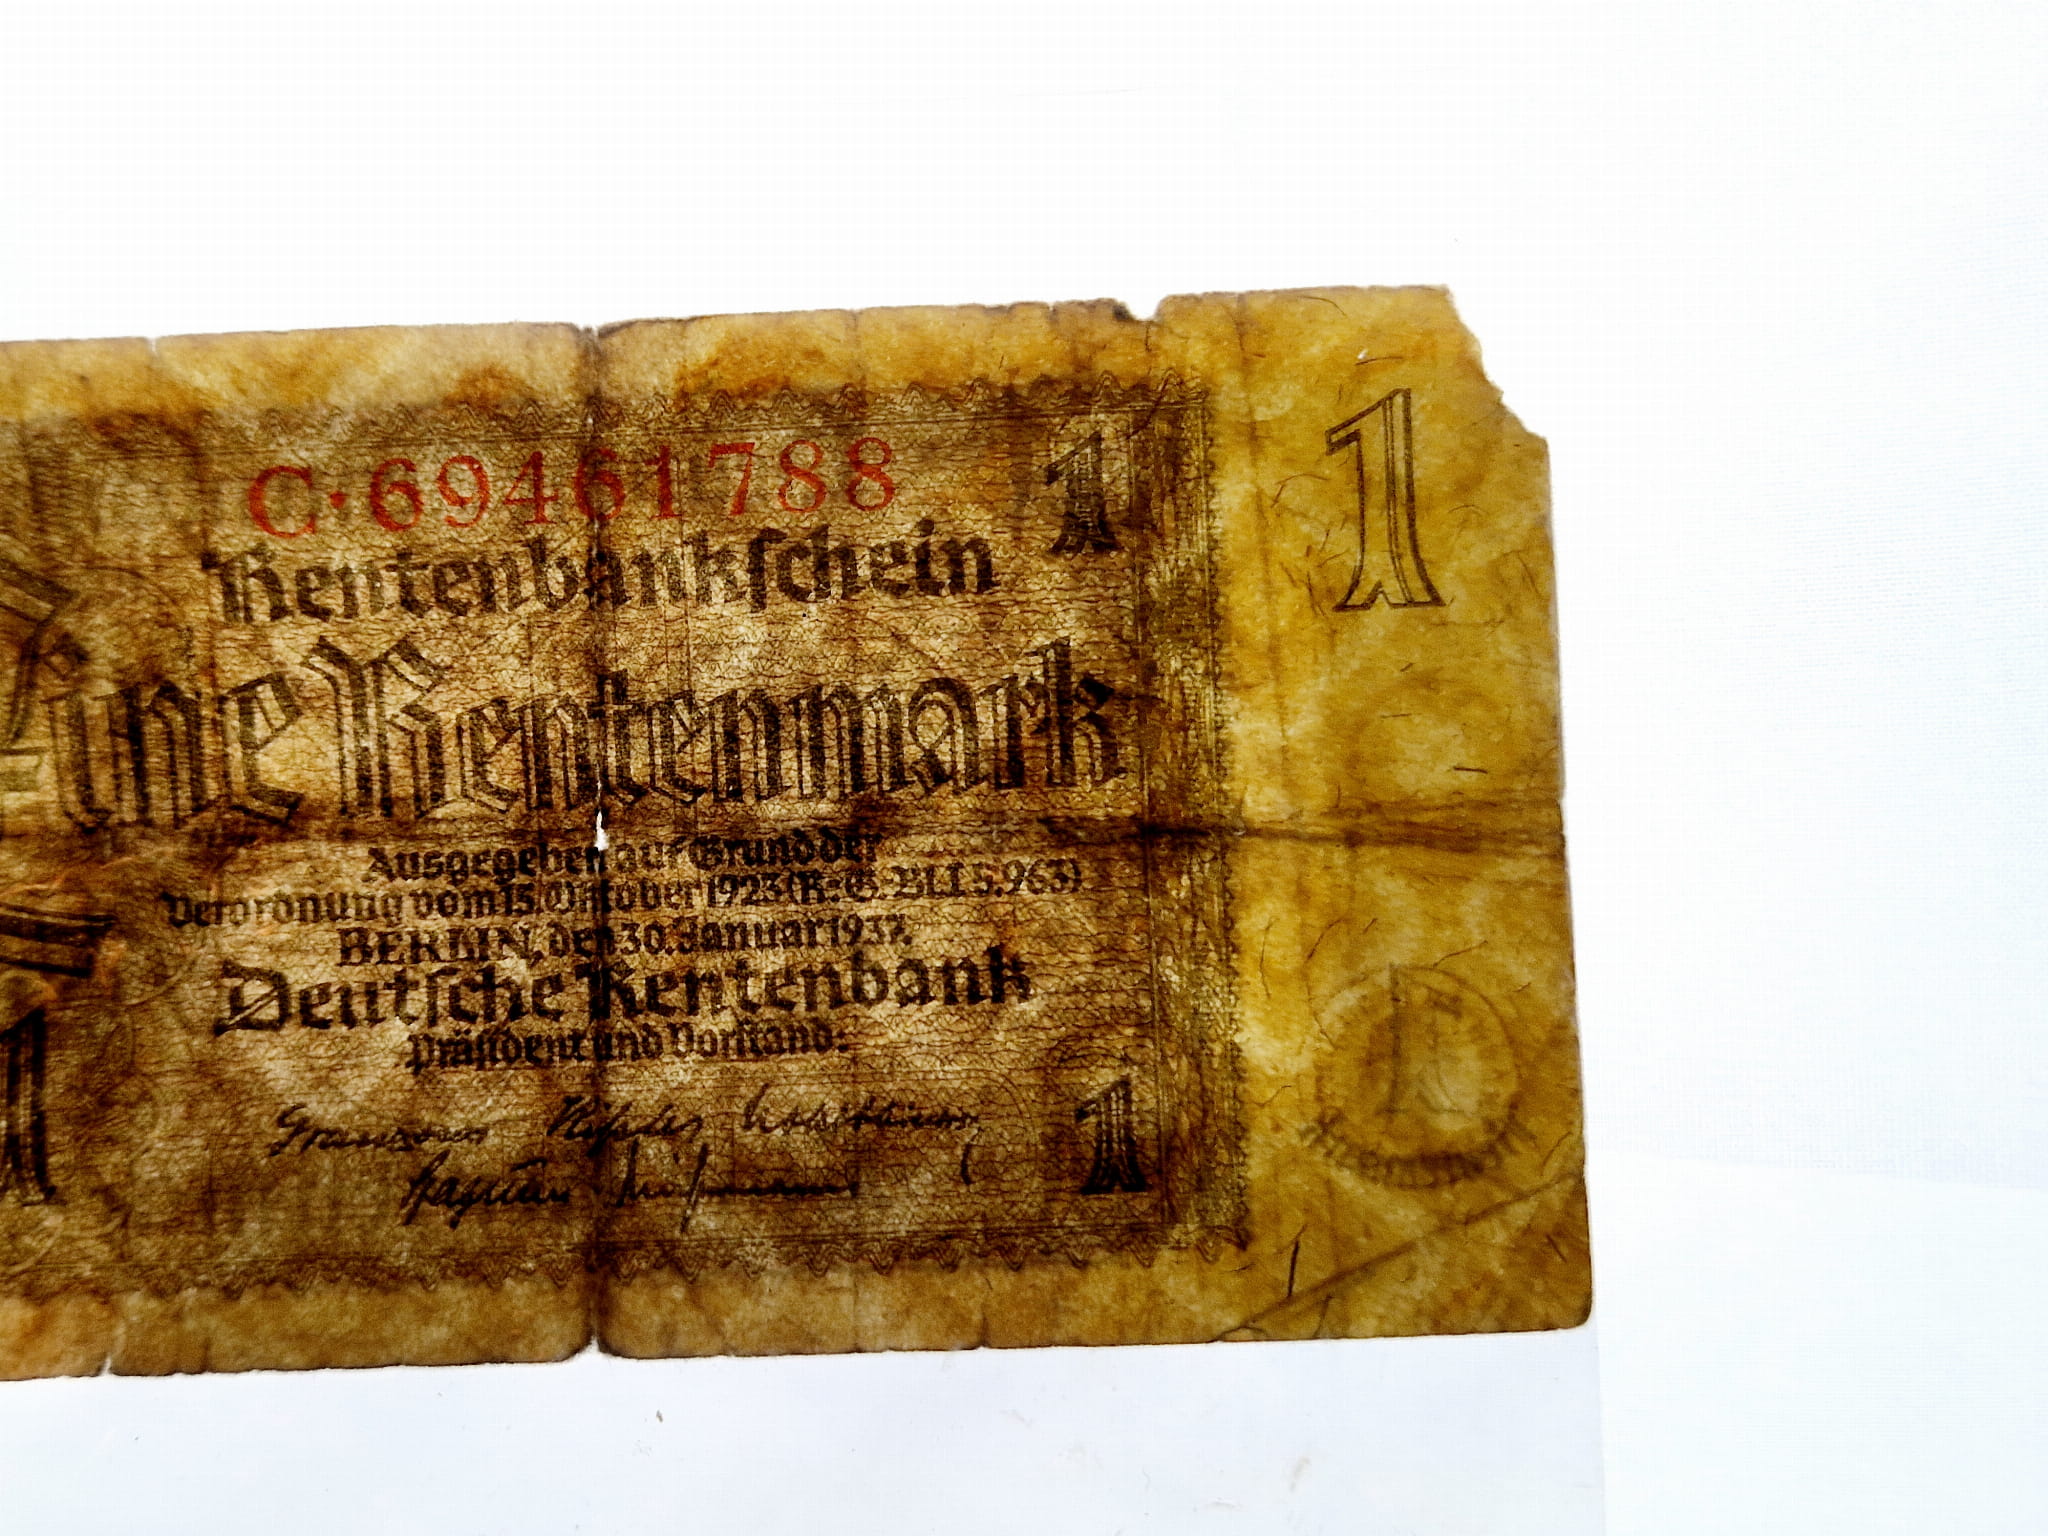 C·69461788
1
1
Rentenbankschein
Eine Rentenmark
Ausgegeben auf Grund der
Verordnung vom 15. Oktober 1923 (R.-G.-Bl. I S. 963)
BERLIN, den 30. Januar 1937.
Deutsche Rentenbank
Präsident und Vorstand:
1
1